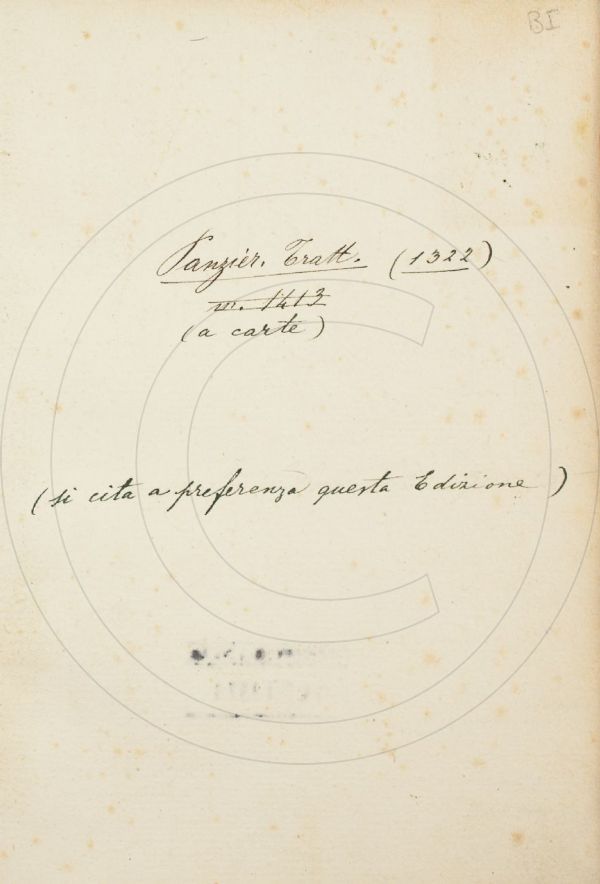 BI
Panzier. Tratt. (1322)
m. 1413
(a carte)
(si cita a preferenza questa Edizione)